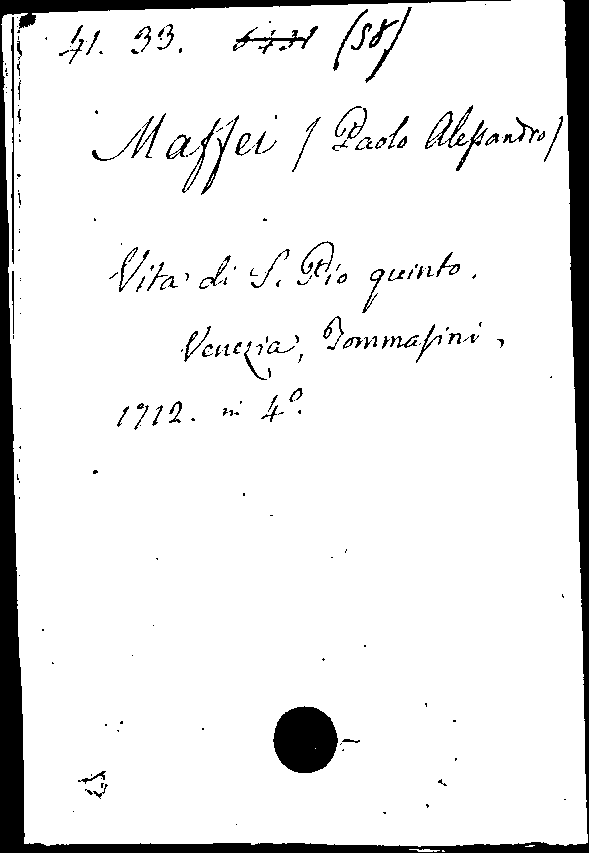 41. 33. 6431 (58)
Maffei / Paolo Aleſsandro /
Vita di S. Pio quinto.
Venezia, Tommaſini,
1712. in 4º.